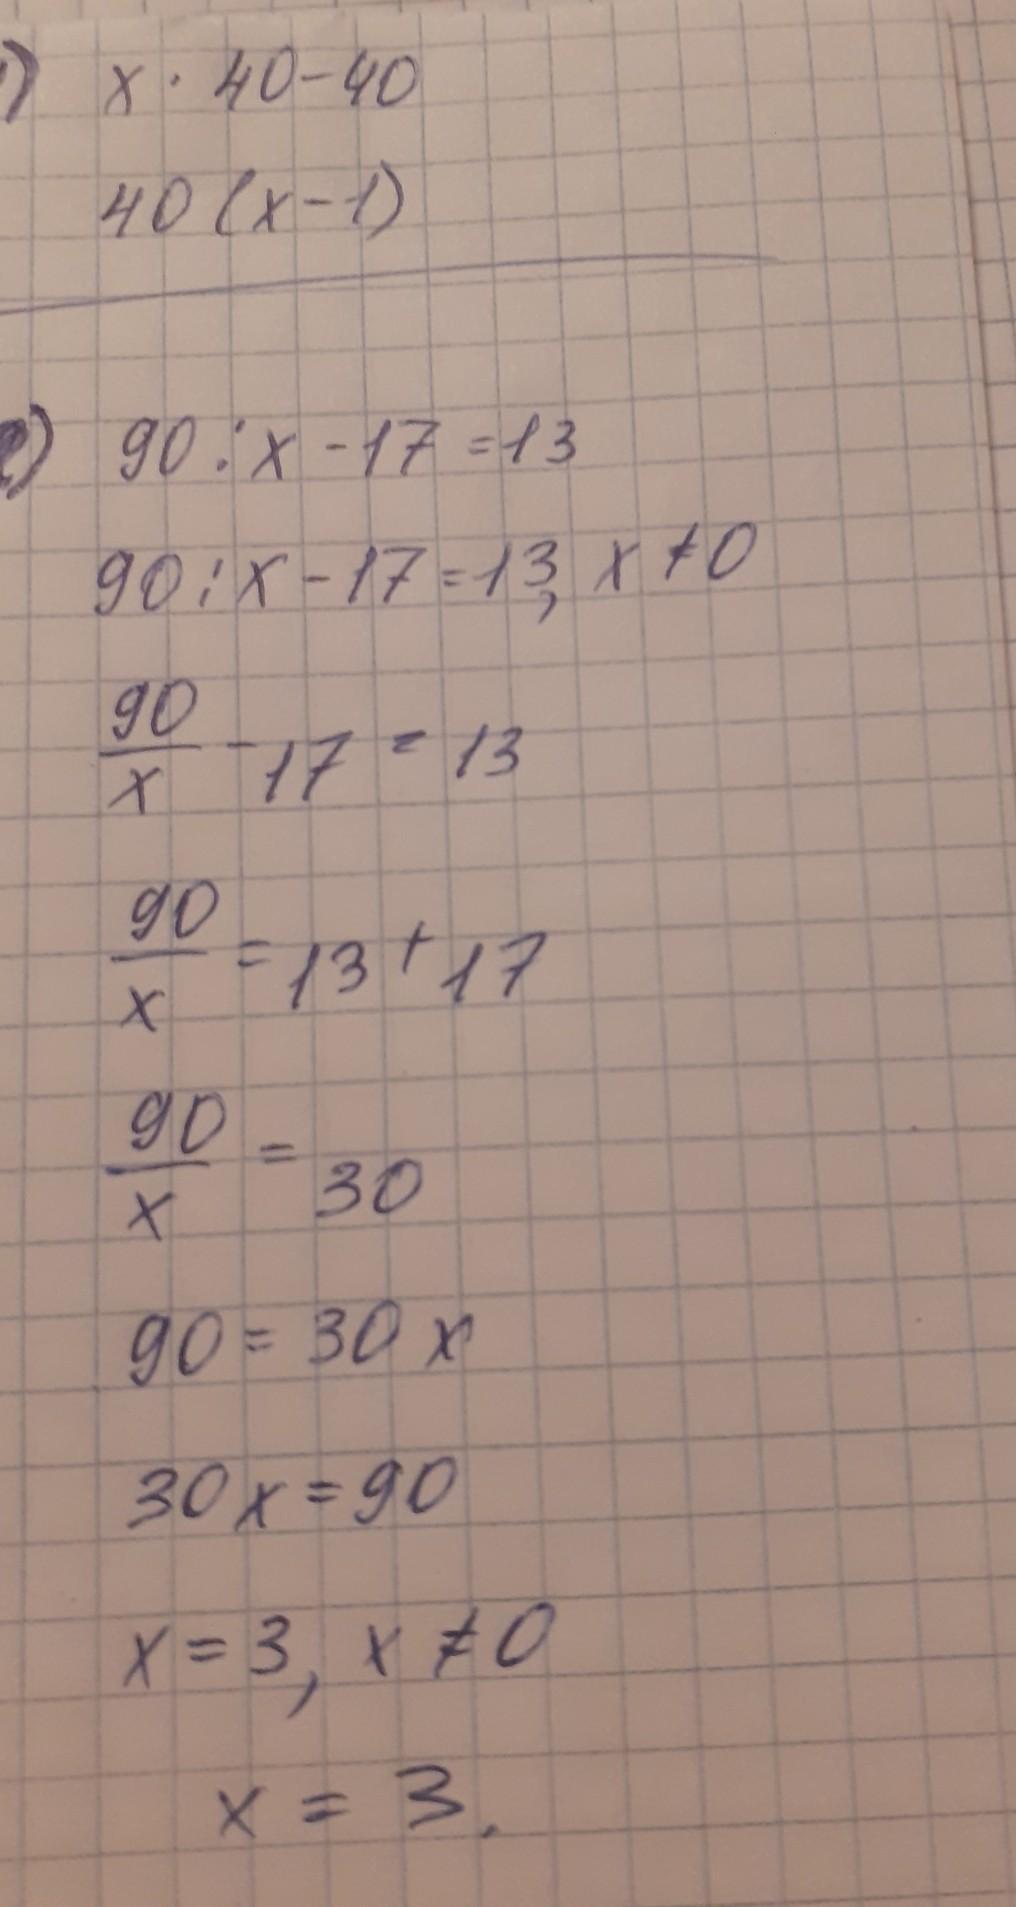 1) x · 40 - 40
40 (x - 1)
2) 90 : x - 17 = 13
90 : x - 17 = 13, x ≠ 0
90/x - 17 = 13
90/x = 13 + 17
90/x = 30
90 = 30 x
30 x = 90
x = 3, x ≠ 0
x = 3.